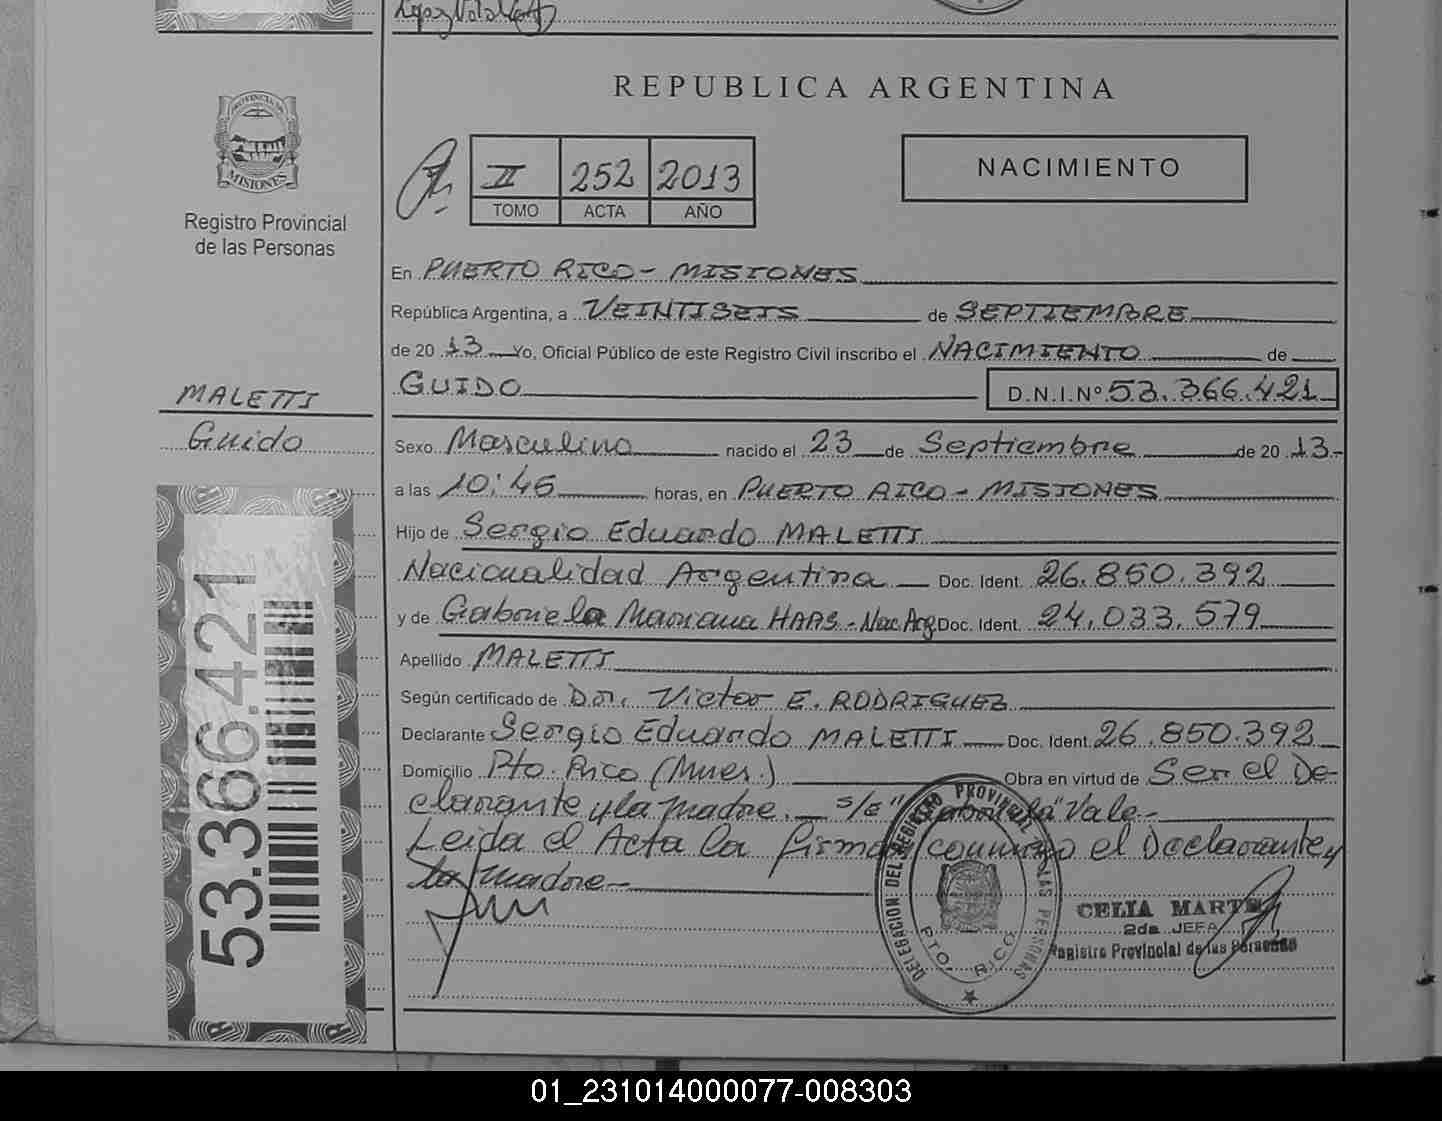 REPUBLICA ARGENTINA
PROVINCIA DE
MISIONES
Registro Provincial
de las Personas
II 252 2013
TOMO ACTA AÑO
NACIMIENTO
En PUERTO RICO - MISIONES
República Argentina, a VEINTISEIS de SEPTIEMBRE
de 20 13 Yo, Oficial Público de este Registro Civil inscribo el NACIMIENTO de
GUIDO D.N.I.Nº 53.366.421
MALETTI
Guido
Sexo Masculino nacido el 23 de Septiembre de 20 13-
a las 10:46 horas, en PUERTO RICO - MISIONES
Hijo de Sergio Eduardo MALETTI
Nacionalidad Argentina Doc. Ident. 26.850.392
y de Gabriela Mariana HAAS - Nac. Arg Doc. Ident. 24.033.579
Apellido MALETTI
Según certificado de Dr. Victor E. RODRIGUEZ
Declarante Sergio Eduardo MALETTI Doc. Ident. 26.850.392
Domicilio Pto. Rico (Mnes.) Obra en virtud de Ser el De-
clarante y la madre. - s/e "Gabriela" Vale-
Leida el Acta la firma conmigo el Declarante y
la madre-
53.366.421
DELEGACION DEL REGISTRO PROVINCIAL DE LAS PERSONAS
PTO. RICO
CELIA MARTE
2da JEFA
Registro Provincial de las Personas
01_231014000077-008303